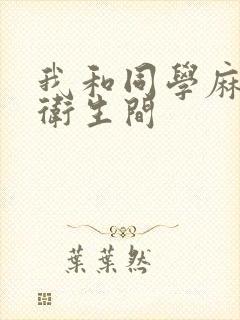 我和同學麻
衛生間
葉葉然